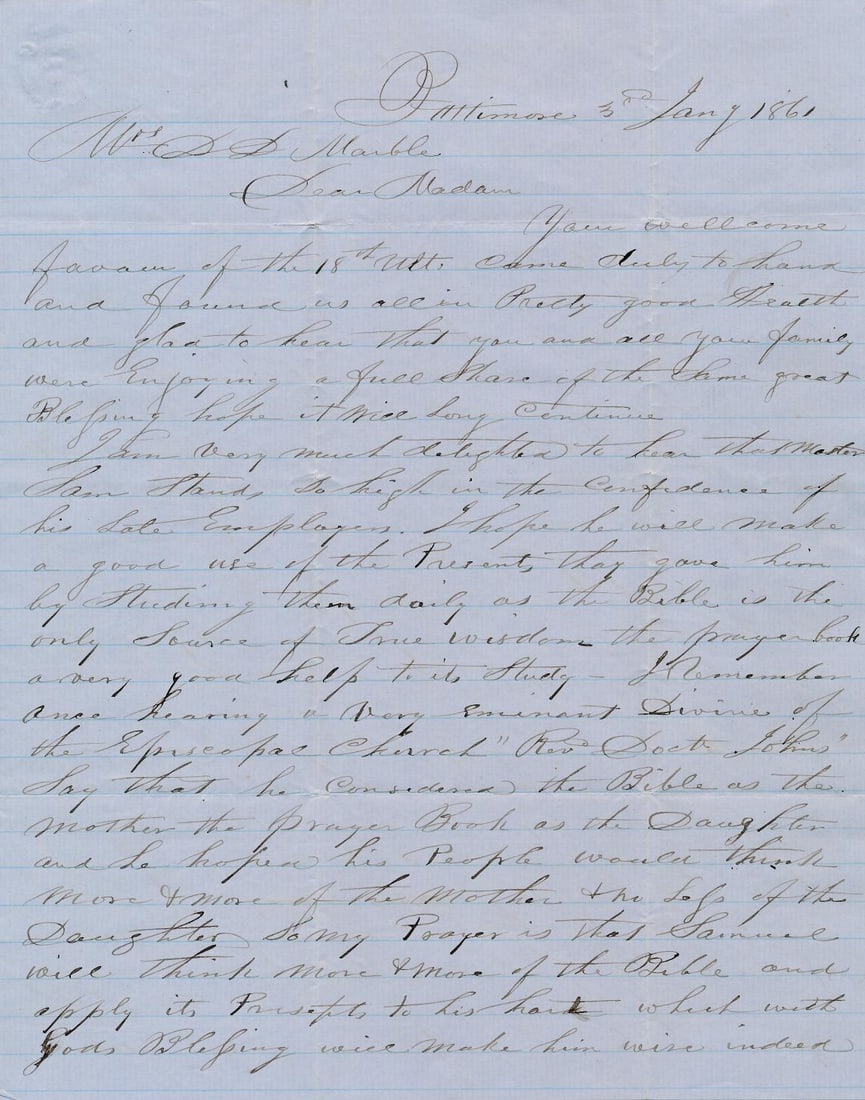 Baltimore 3rd Jany 1861
Mrs D D Marble
Dear Madam
Your wellcome
favour of the 18th Ult. came duly to hand
and found us all in Pretty good Health
and glad to hear that you and all your family
were Enjoying a full Share of the Same great
Blessing hope it will Long Continue
I am very much delighted to hear that Master
Sam Stands so high in the Confidence of
his Late Employers. I hope he will make
a good use of the Presents they gave him
by Studing them daily as the Bible is the
only Source of True wisdom the prayer book
a very good help to its Study – I Remember
once hearing a very eminant Divine of
the Episcopal Church "Revd Doctr Johns"
Say that he Considered the Bible as the
Mother the prayer Book as the Daughter
and he hoped his People would think
more & more of the Mother & no Less of the
Daughter So my Prayer is that Samuel
will think more & more of the Bible and
apply its Presepts to his hart which with
Gods Blessing will make him wise indeed